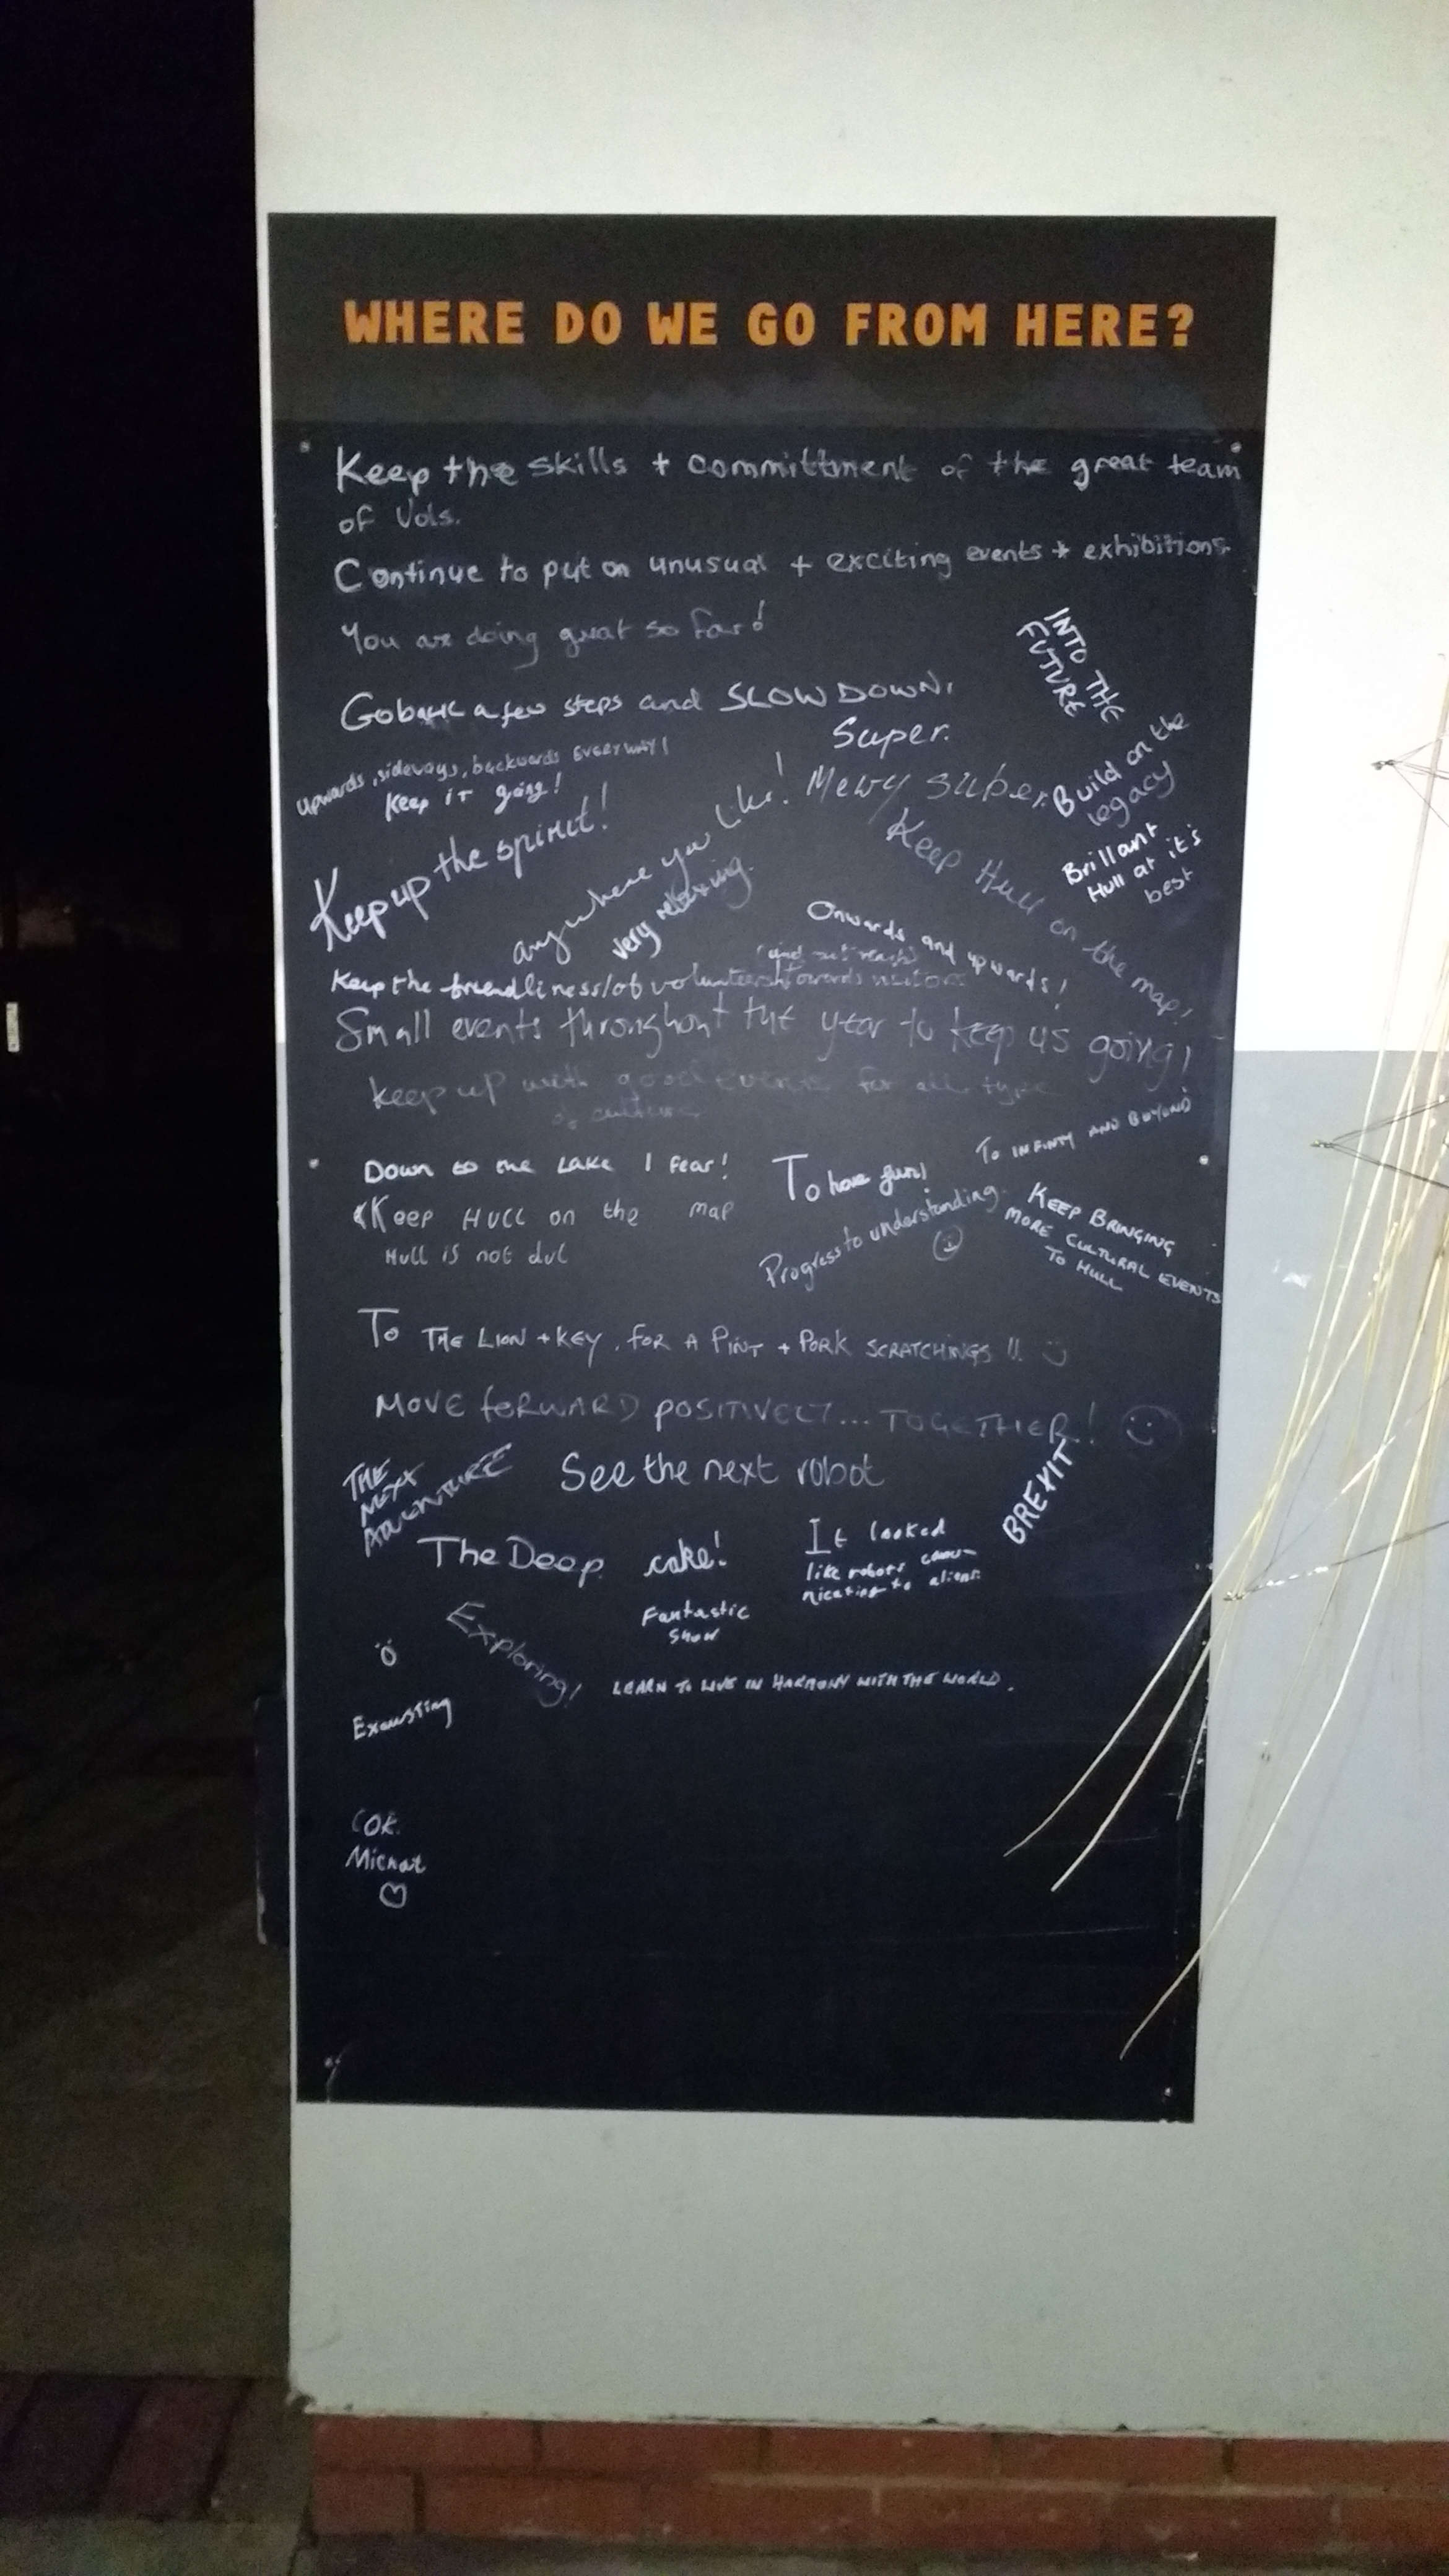 WHERE DO WE GO FROM HERE?
Keep the skills + committment of the great team
of Vols.
Continue to put on unusual + exciting events + exhibitions.
You are doing great so far!
INTO THE
FUTURE
Go back a few steps and SLOW DOWN!
Super.
upwards, sideways, backwards EVERYWAY!
Keep it going!
Mewy super.
Build on the
legacy
Keep up the spirit!
anywhere you like!
very relaxing.
Keep Hull on the map!
Brillant
Hull at it's
best
Onwards and upwards!
(and outreach)
Keep the friendliness/of volunteers towards visitors
Small events throughout the year to keep us going!
keep up with good events for all type
of culture
To INFINTY AND BEYOND
Down to the Lake I fear!
To have fun!
Keep HULL on the map
Hull is not dul
Progress to understanding.
KEEP BRINGING
MORE CULTURAL EVENTS
TO HULL
To THE LION + KEY. FOR A PINT + PORK SCRATCHINGS !!
MOVE FORWARD POSITIVELY... TOGETHER!
THE
NEXT
ADVENTURE
See the next robot
BREXIT
The Deep.
cake!
It looked
like robots comu-
nicating to aliens
Fantastic
Show
Exploring!
LEARN TO LIVE IN HARMONY WITH THE WORLD.
Exausting
OK.